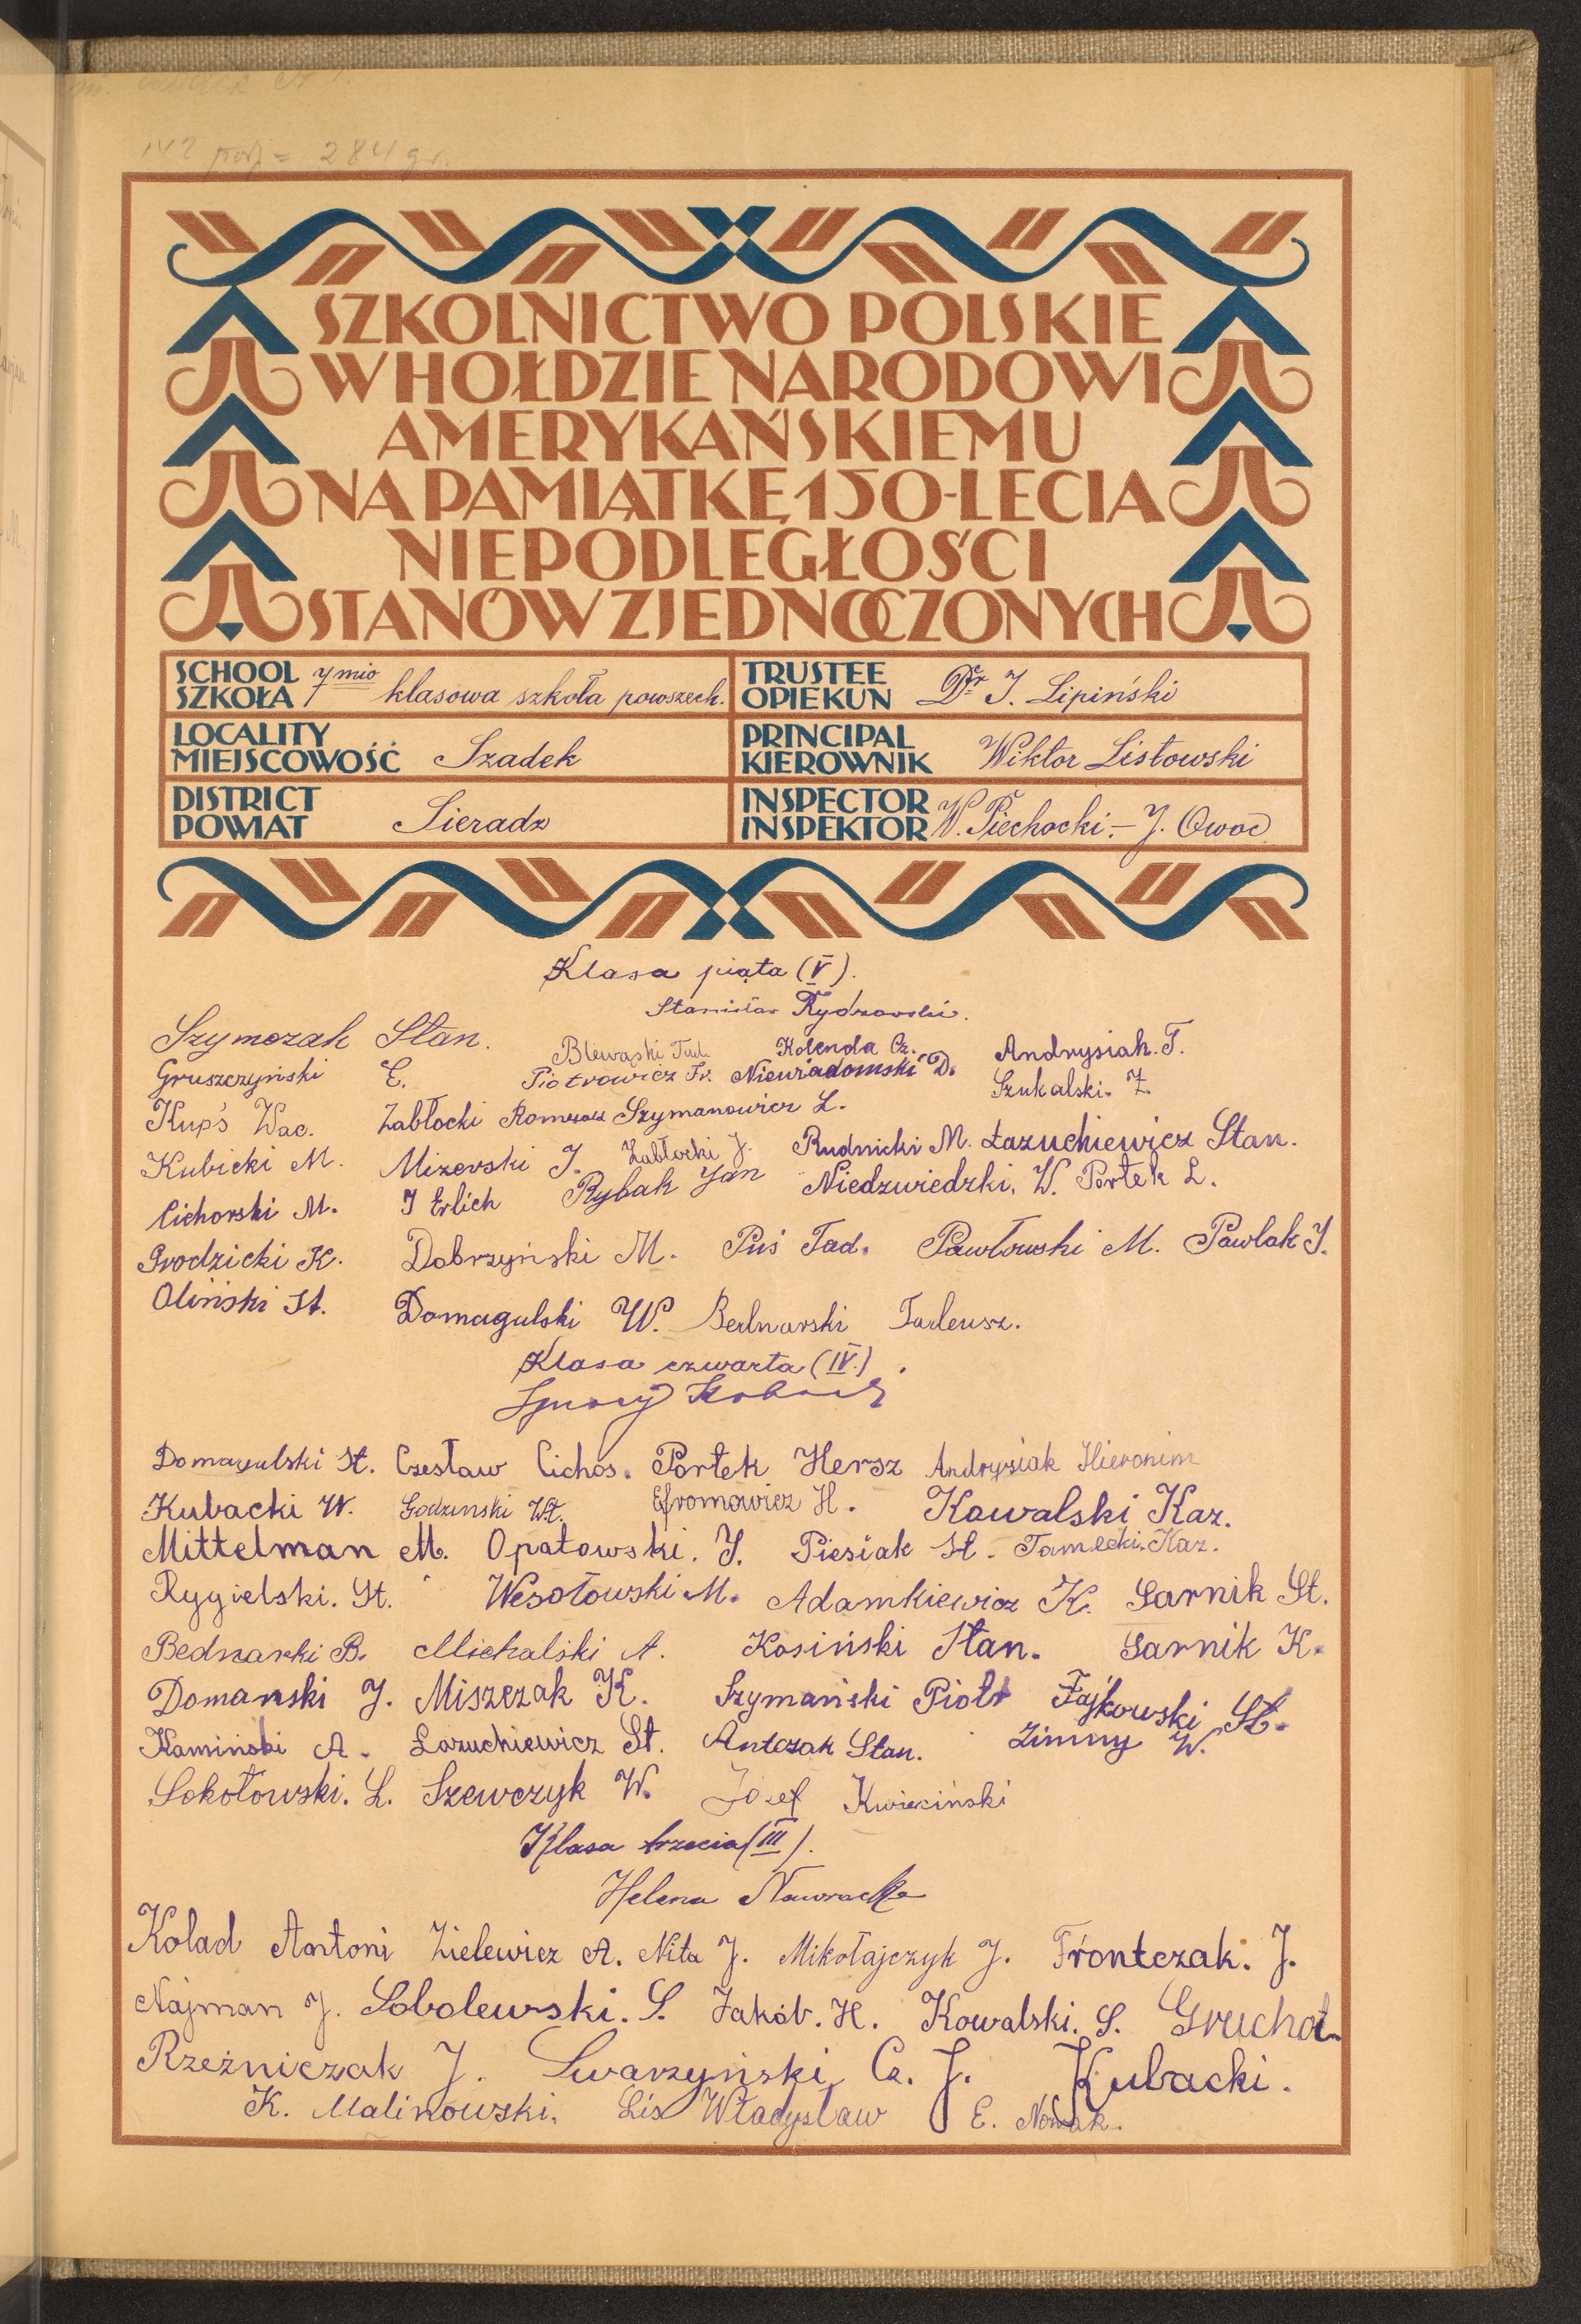 142 podj = 284 gr.
SZKOLNICTWO POLSKIE
W HOŁDZIE NARODOWI
AMERYKAŃSKIEMU
NA PAMIĄTKĘ 150-LECIA
NIEPODLEGŁOŚCI
STANÓW ZJEDNOCZONYCH
SCHOOL SZKOŁA 7mio klasowa szkoła powszech.
TRUSTEE OPIEKUN Dr J. Lipiński
LOCALITY MIEJSCOWOŚĆ Szadek
PRINCIPAL KIEROWNIK Wiktor Listowski
DISTRICT POWIAT Sieradz
INSPECTOR INSPEKTOR W. Piechocki - J. Owoc
Klasa piąta (V).
Stanisław Rydzewski.
Szymczak Stan. Blewąski Tad. Kolenda Cz. Andrysiak. T.
Gruszczyński E. Piotrowicz Fr. Niewiadomski D. Szukalski. Z.
Kupś Wac. Zabłocki Romuald Szymanowicz L.
Kubicki M. Mizerski J. Zabłocki J. Rudnicki M. Łazuchiewicz Stan.
Cichorski M. J Erlich Rybak Jan Niedzwiedzki. W. Portek L.
Grodzicki K. Dobrzyński M. Puś Tad. Pawłowski M. Pawlak J.
Oliński St. Domagulski W. Bednarski Tadeusz.
Klasa czwarta (IV.)
Ignacy
Domagulski St. Czesław Cichos. Portek Hersz Andrysiak Hieronim
Kubacki W. Godzinski Wł. Efromowicz H. Kowalski Kaz.
Mittelman M. Opatowski. J. Piesiak St. Tamecki. Kaz.
Rygielski. St. Wesołowski M. Adamkiewicz K. Sarnik St.
Bednarki B. Michalski A. Kosiński Stan. Sarnik K.
Domanski J. Miszczak K. Szymański Piotr Fajkowski St.
Kamiński A. Lazuchiewicz St. Antczak Stan. Zimny W.
Sokołowski. L. Szewczyk W. Józef Kwieciński
Klasa trzecia (III).
Helena Nawrocka
Kolad Antoni Zielewicz A. Nita J. Mikołajczyk J. Frontczak. J.
Najman J. Sobolewski. S. Jakób. H. Kowalski. S. Gruchot
Rzeźniczak J. Swarzyński Cz. J. Kubacki.
K. Malinowski. Lis Władysław E. Nowak.